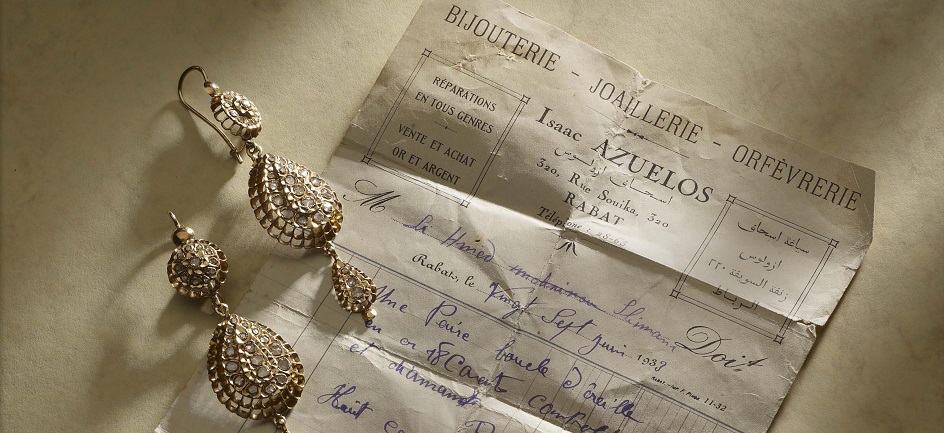 BIJOUTERIE - JOAILLERIE - ORFÈVRERIE
RÉPARATIONS
EN TOUS GENRES
VENTE ET ACHAT
OR ET ARGENT
Isaac AZUELOS
320, Rue Souika, 320
RABAT
Téléphone
صياغة اسحاق
ازولوس
زنقة السويقة ٣٢٠
الرباط
M
Slimana
Doit
Rabat, le Vingt Sept Juin 1933
11-32
Une Paire boucle d'oreille
en or 18 Carats
et diamants
Huit